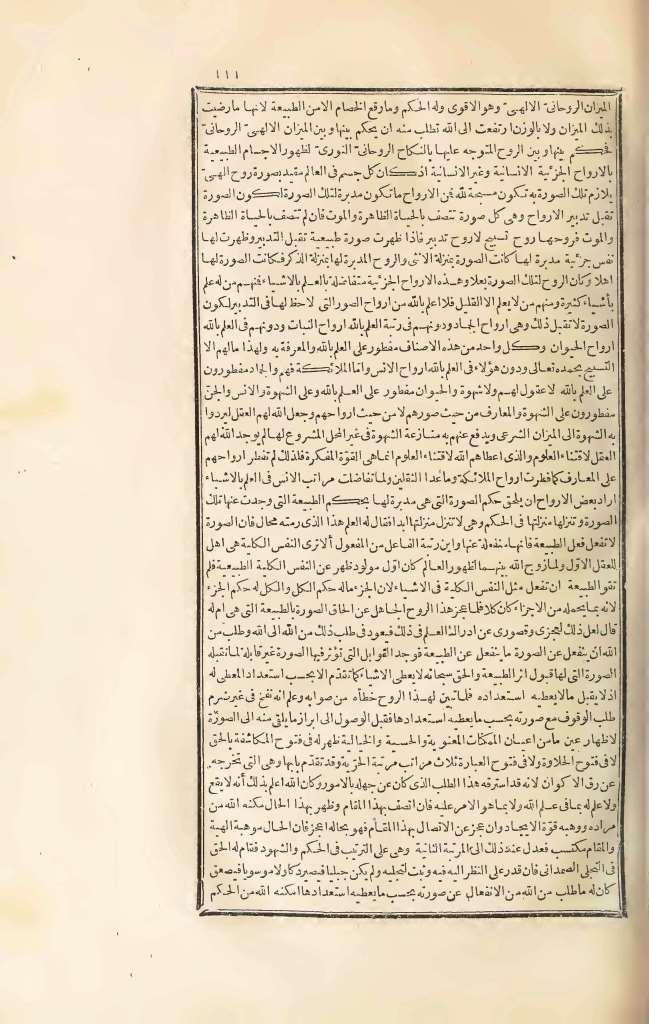 ١١١
الميزان الروحاني الالهي وهو الاقوى وله الحكم وما رفع الخصام الا من الطبيعة لانها ما رضيت
بذلك الميزان ولا بالوزن ارتفعت الى الله تطلب منه ان يحكم بينها وبين الميزان الالهي الروحاني
فحكم بينها وبين الروح المتوجه عليها بالنكاح الروحاني النوري لظهور الاجسام الطبيعية
بالارواح الجزئية الانسانية وغير الانسانية اذ كان كل جسم فى العالم مقيد بصورة روح الهي
يلازم تلك الصورة به تكون مسبحة لله فمن الارواح ما تكون مدبرة لتلك الصورة لكون الصورة
تقبل تدبير الارواح وهى كل صورة تتصف بالحياة الظاهرة والموت فان لم تتصف بالحياة الظاهرة
والموت فروحها روح تسبيح لا روح تدبير فاذا ظهرت صورة طبيعية تقبل التدبير وظهرت لها
نفس جزئية مدبرة لها كانت الصورة بمنزلة الانثى والروح المدبرة لها بمنزلة الذكر فكانت الصورة لها
اهلا وكان الروح لتلك الصورة بعلا وهذه الارواح الجزئية متفاضلة بالعلم بالاشياء فمنهم من له علم
بأشياء كثيرة ومنهم من لا يعلم الا القليل فلا اعلم بالله من ارواح الصور التى لا حظ لها فى التدبير لكون
الصورة لا تقبل ذلك وهى ارواح الجماد ودونهم فى رتبة العلم بالله ارواح النبات ودونهم فى العلم بالله
ارواح الحيوان وكل واحد من هذه الاصناف مفطور على العلم بالله والمعرفة به ولهذا مالهم الا
التسبيح بحمده تعالى ودون هؤلاء فى العلم بالله ارواح الانس واما الملائكة فهم والجماد مفطورون
على العلم بالله لا عقول لهم ولا شهوة والحيوان مفطور على العلم بالله وعلى الشهوة والانس والجن
مفطورون على الشهوة والمعارف من حيث صورهم لا من حيث ارواحهم وجعل الله لهم العقل ليردوا
به الشهوة الى الميزان الشرعى ويدفع عنهم به منازعة الشهوة فى غير المحل المشروع لها لم يوجد الله لهم
العقل لاقتناء العلوم والذى اعطاهم الله لاقتناء العلوم انما هى القوة المفكرة فلذلك لم تفطر ارواحهم
على المعارف كما فطرت ارواح الملائكة وما عدا الثقلين ولما تفاضلت مراتب الانس فى العلم بالاشياء
اراد بعض الارواح ان يلحق حكم الصورة التى هى مدبرة لها بحكم الطبيعة التى وجدت عنها تلك
الصورة وتنزلها منزلتها فى الحكم وهى لا تنزل منزلتها ابدا فقال له العلم هذا الذى رمته محال فان الصورة
لا تفعل فعل الطبيعة فانها منفعلة عنها واين رتبة الفاعل من المفعول ألا ترى النفس الكلية هى اهل
للعقل الاول ولما زوج الله بينهما لظهور العالم كان اول مولود ظهر عن النفس الكلية الطبيعية فلم
تقو الطبيعة ان تفعل مثل النفس الكلية فى الاشياء لان الجزء ماله حكم الكل والكل له حكم الجزء
لانه بما يحمله من الاجزاء كان كلا فلما عجز هذا الروح الجاهل عن الحاق الصورة بالطبيعة التى هى ام له
قال لعل ذلك لعجزى وقصورى عن ادراك العلم فى ذلك فيعود فى طلب ذلك من الله الى الله وطلب من
الله ان ينفعل عن الصورة ما ينفعل عن الطبيعة فوجد القوابل التى تؤثر فيها الصورة غير قابلة لما تقبله
الصورة التى لها قبول اثر الطبيعة والحق سبحانه لا يعطى الاشياء كما تقدم الا بحسب استعداد المعطى له
اذ لا يقبل ما لا يعطيه استعداده فلما تبين لهذا الروح خطأه من صوابه وعلم انه نفخ فى غير ضرم
طلب الوقوف مع صورته بحسب ما يعطيه استعدادها فقبل الوصول الى ابراز ما يلقى منه الى الصورة
لاظهار عين ما من اعيان الممكنات المعنوية والحسية والخيالية ظهر له فى فتوح المكاشفة بالحق
لا فى فتوح الحلاوة ولا فى فتوح العبارة ثلاث مراتب مرتبة الحرية وقد تقدم بابها وهى التى تخرجه
عن رق الاكوان لانه قد استرقه هذا الطلب الذى كان عن جهله بالامور وكان الله اعلم بذلك أنه لا يقع
ولا علم له بما فى علم الله ولا بما هو الامر عليه فان اتصف بهذا المقام وظهر بهذا الحال مكنه الله من
مراده ووهبه قوة الايجاد وان عجز عن الاتصال بهذا المقام فهو بحاله اعجز فان الحال موهبة الهية
والمقام مكتسب فعدل عند ذلك الى المرتبة الثانية وهى على الترتيب فى الحكم والشهود فقام له الحق
فى التجلى الصمدانى فان قدر على النظر اليه فيه وثبت لتجليه ولم يكن جبليا فيصير دكا ولا موسويا فيصعق
كان له ما طلب من الله من الانفعال عن صورته بحسب ما يعطيه استعدادها مكنه الله من الحكم